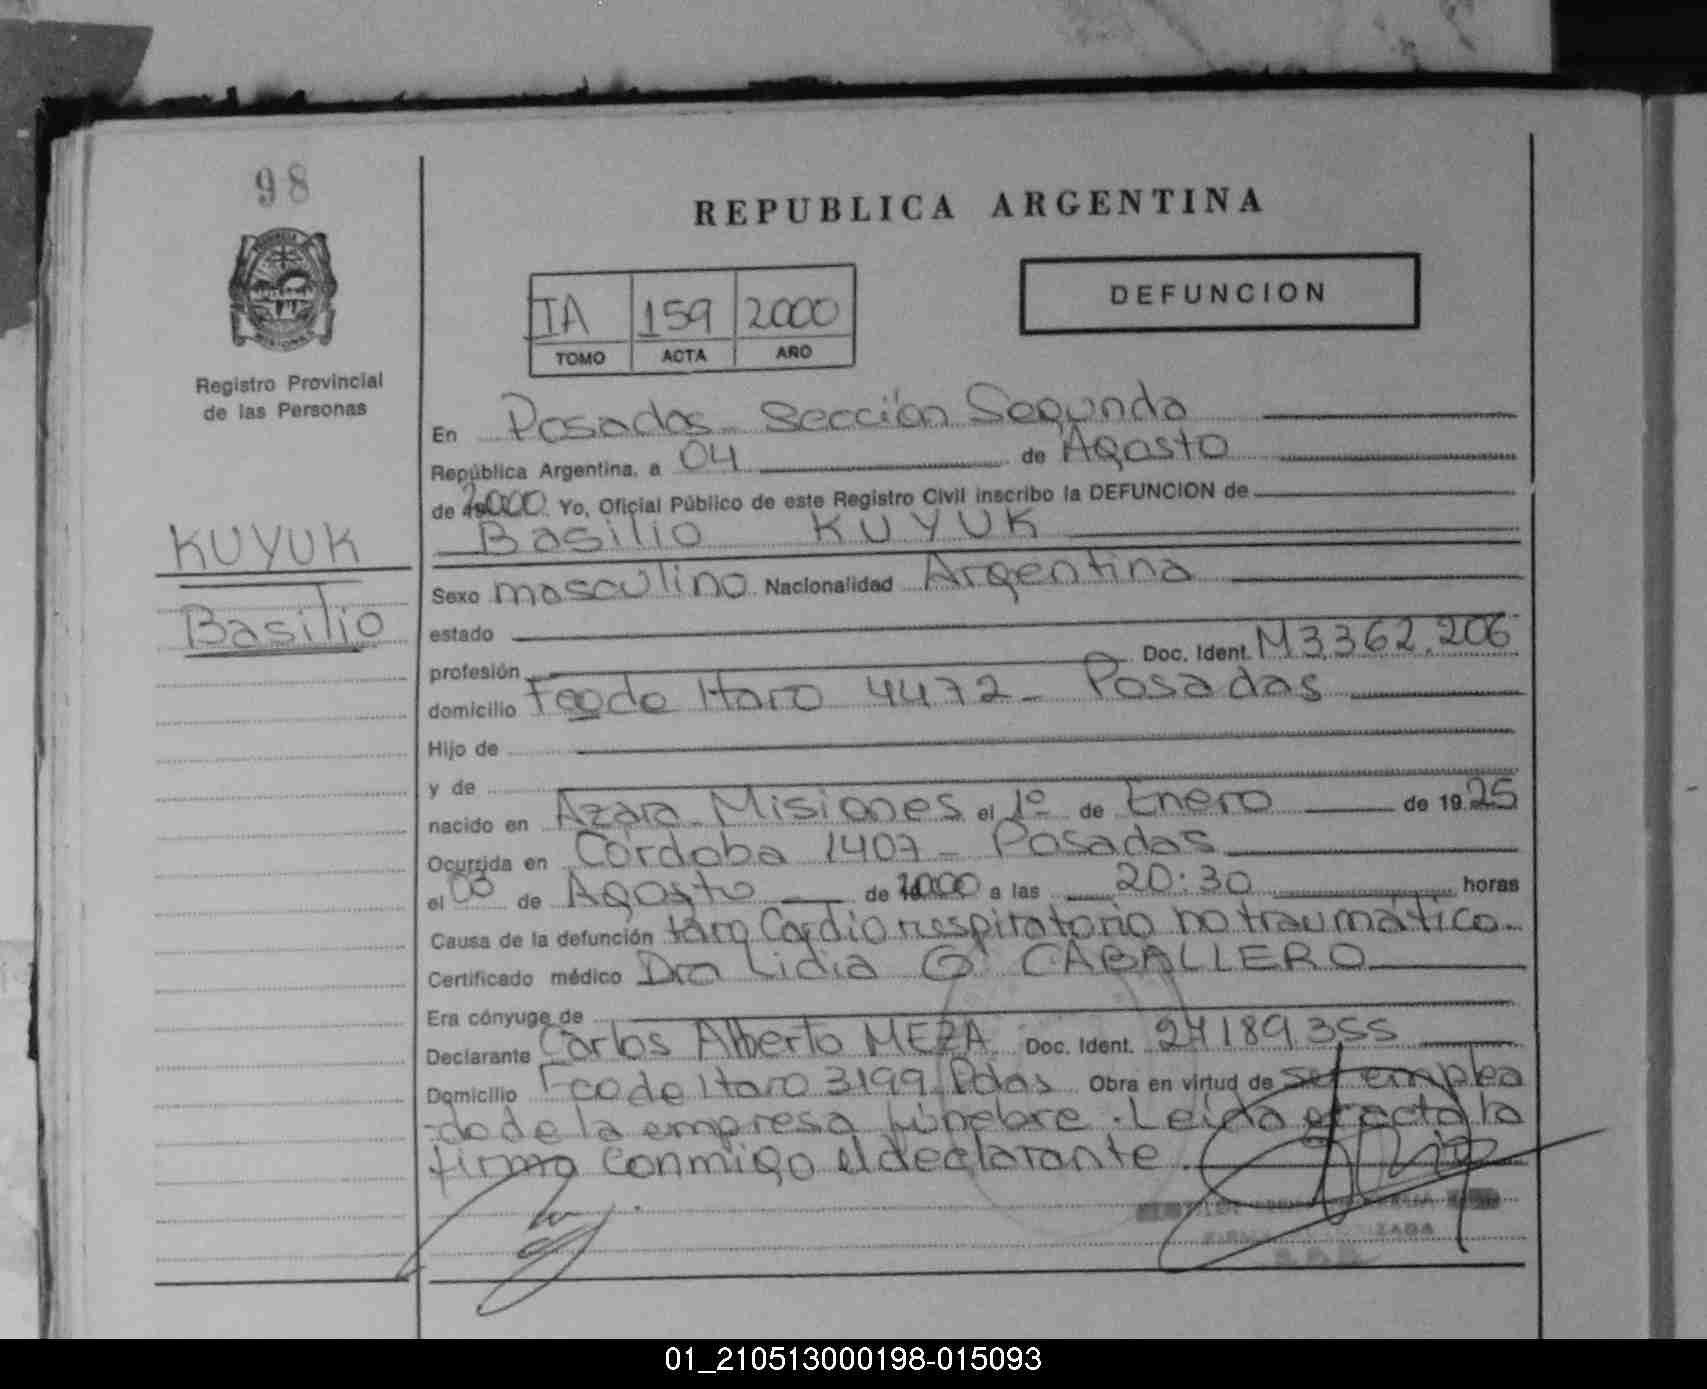 98
Registro Provincial
de las Personas
KUYUK
Basilio
REPUBLICA ARGENTINA
IA 159 2000
TOMO ACTA AÑO
DEFUNCION
En Posadas Sección Segunda
República Argentina, a 04 de Agosto
de 2000. Yo, Oficial Público de este Registro Civil inscribo la DEFUNCION de
Basilio KUYUK
Sexo masculino Nacionalidad Argentina
estado
profesión Doc. Ident. M3.362.206
domicilio Fcode Haro 4472 - Posadas
Hijo de
y de
nacido en Azara Misiones el 1º de Enero de 1925
Ocurrida en Córdoba 1407 - Posadas
el 03 de Agosto de 2000 a las 20:30 horas
Causa de la defunción Paro Cardiorrespiratorio no traumático.
Certificado médico Dra Lidia G. CABALLERO
Era cónyuge de
Declarante Carlos Alberto MEZA Doc. Ident. 24189355
Domicilio Fco de Haro 3199 Pdas Obra en virtud de ser emplea
do de la empresa fúnebre. Leída el acta la
firma conmigo el declarante.
01_210513000198-015093